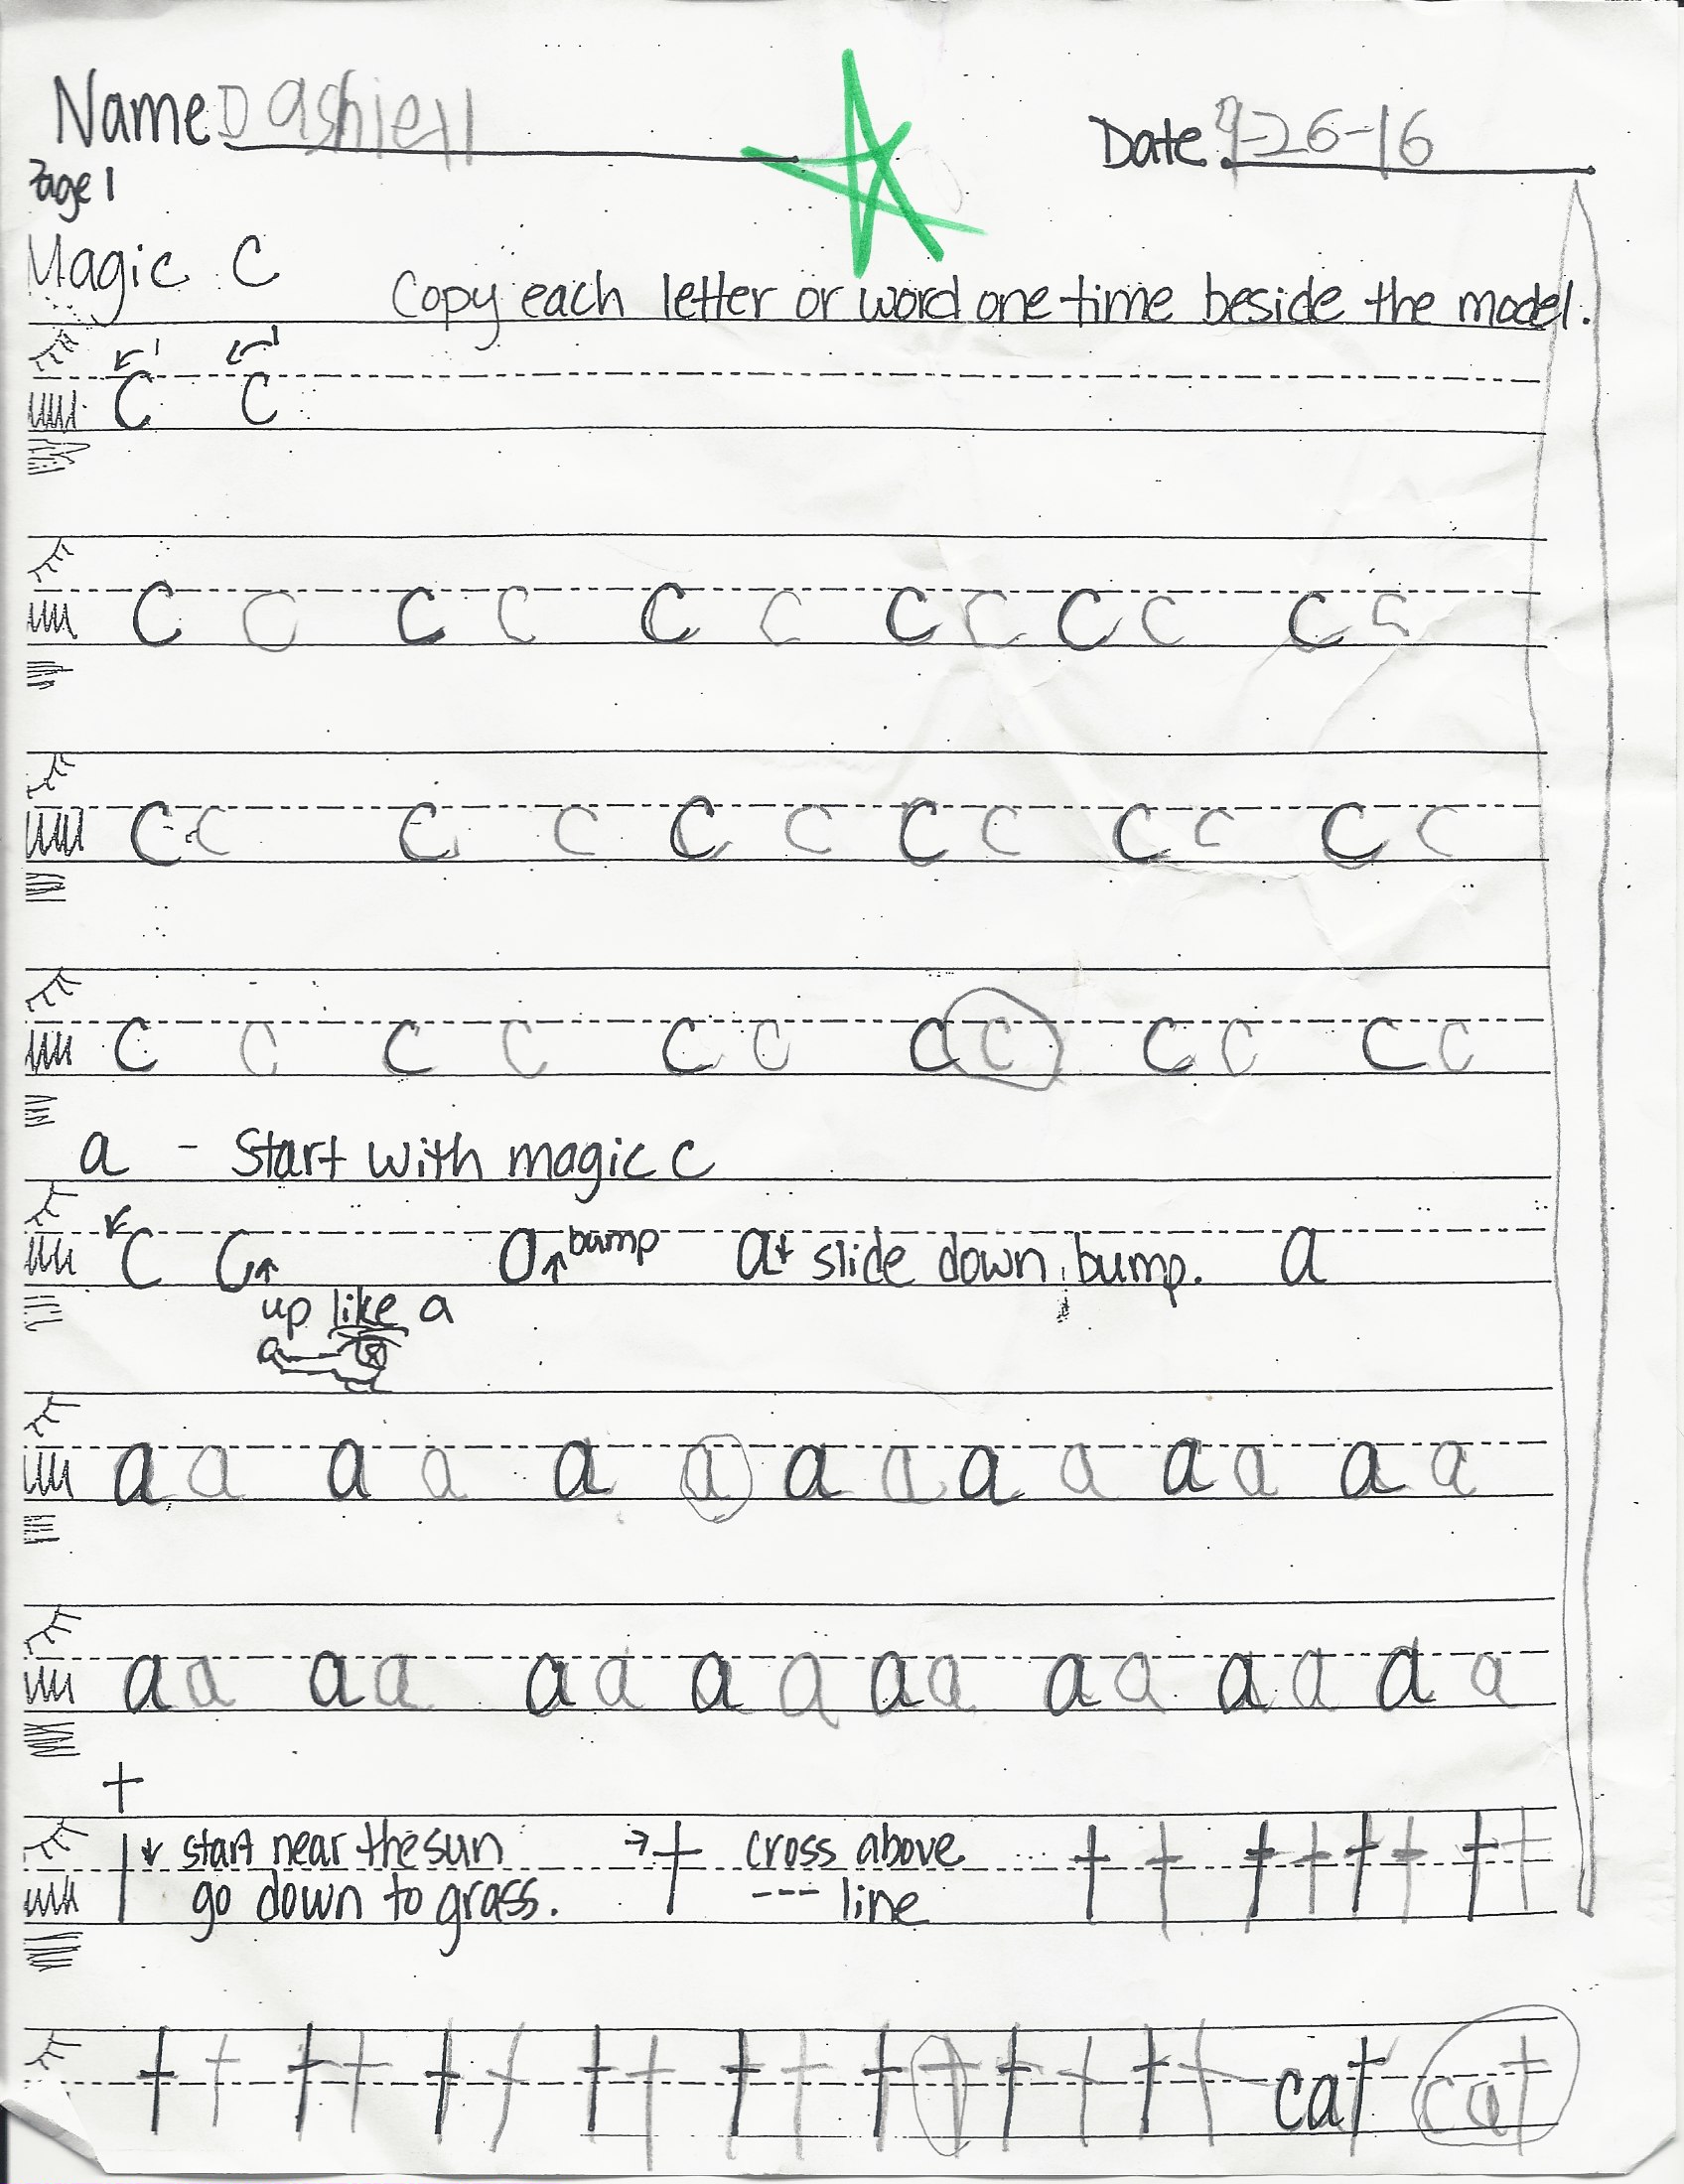 Name Dashiell Date 9-26-16
Page 1
Magic C
Copy each letter or word one time beside the model.
C C
C C C C C C C C C C C C
C C C C C C C C C C C C
C C C C C C C C C C C C
a - Start with magic c
C C a bump a slide down bump. a
up like a
a a a a a a a a a a a a
a a a a a a a a a a a a a a a a
t
start near the sun t cross above t t t t t t t t
go down to grass. --- line
t t t t t t t t t t t t t t t t cat cat